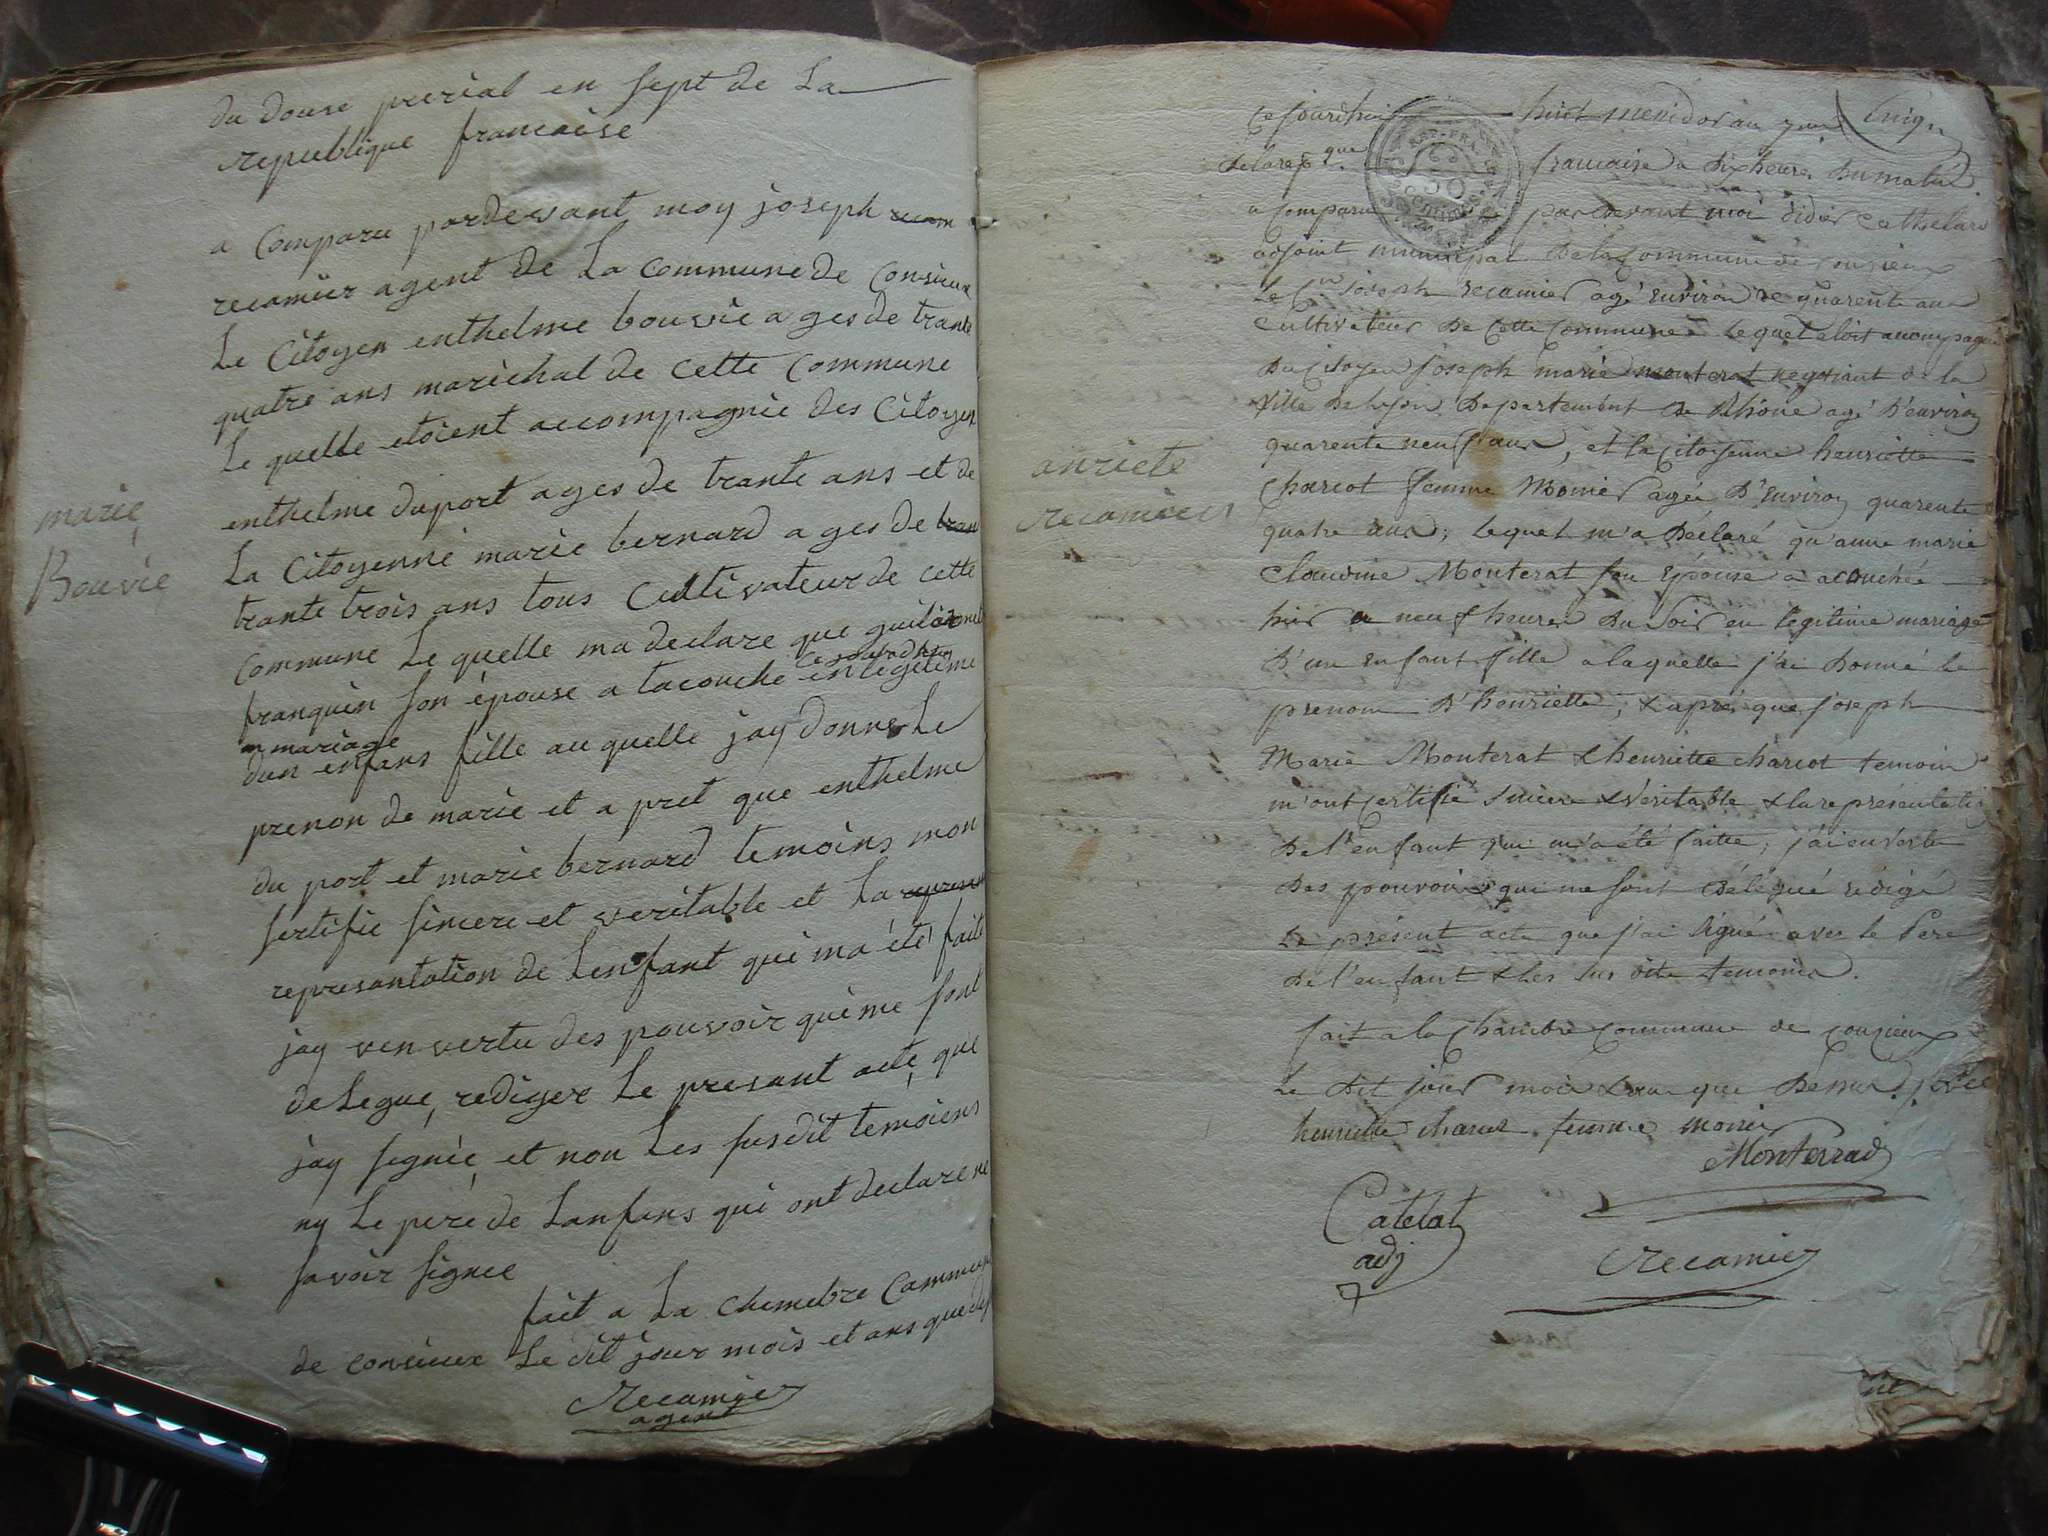 du douse prerial en sept de La
republique francaise
a comparu pardevant moy joseph
recamier agent de La commune de Consieux
Le Citoyen enthelme bouvie a ges de trante
quatre ans marichal de cette commune
Le quelle etoient accompagnie des Citoyen
enthelme duport a ges de trante ans et de
La Citoyenne marie bernard a ges de
trante trois ans tous Cultivateur de cette
Commune Le quelle ma declare que
ce jourdhui
franquin son épouse a tacouche en legetime
mariage
dun enfans fille au quelle jay donne Le
prenon de marie et a pret que enthelme
du port et marie bernard temoins mon
sertifie sincere et veritable et La
representation de Lenfant qui ma été faite
jay ven vertu des pouvoir qui me sont
delegue, rediger Le presant acte, que
jay signée, et non Les susdit temoiens
ny Le pere de Lanfans qui ont declare ne
savoir signee
fait a La chemebre Commune
de consieux Le dit jour mois et ans que
Recamier
agent
marie
Bouvie
Ce jourdhui huit mesidor an
Declare que francaise a dix heures du matin
a comparu pardevant moi didier Cathelard
adjoint municipal de la Commune de
Le Cen joseph recamier agé environ de quarente ans
Cultivateur de Cette Commune Lequel étoit accompagné
du Citoyen joseph marie monterat negotiant de la
ville de Lyon departement de Rhône agé d'environ
quarente neuf ans, et la Citoyenne henriette
Charcot femme Monier agée d'environ quarente
quatre ans; Lequel m'a déclaré qu'anne marie
Claudine Monterat son épouse a acouchée
hier a neuf heures du soir en legitime mariage
d'un enfant fille a laquelle j'ai donné le
prenom d'henriette; & après que joseph
Marie Monterat & henriette charcot temoin
m'ont certifié sincere & véritable & la représentation
de l'enfant qui m'a été faitte, j'ai en vertu
des pouvoirs qui me sont délégué rédigé
Le présent acte que j'ai signé avec le Pere
de l'enfant & les sus dits temoins.
fait a la Chambre Commune de
Le dit jour mois & an que dessus.
henriette charcot femme monier
Monterrad
Catelat
adj
Recamier
anriete
recamiers